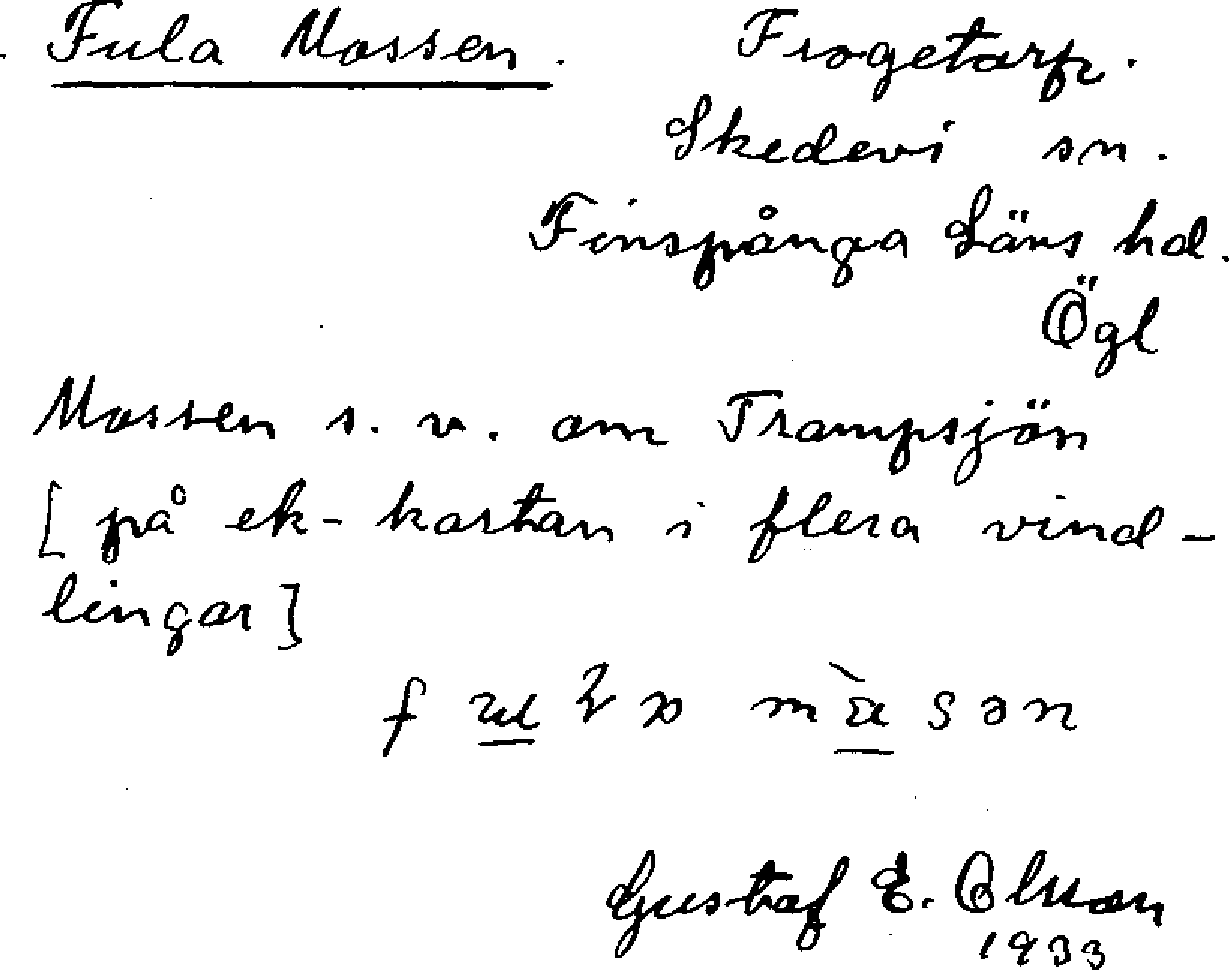 Fula Mossen. Frogetorp.
Skedevi sn.
Finspånga Läns hd.
Ögl
Mossen s. v. om Trampsjön
[på ek-kartan i flera vind-
lingar]
Gustaf E. Olsson
1933